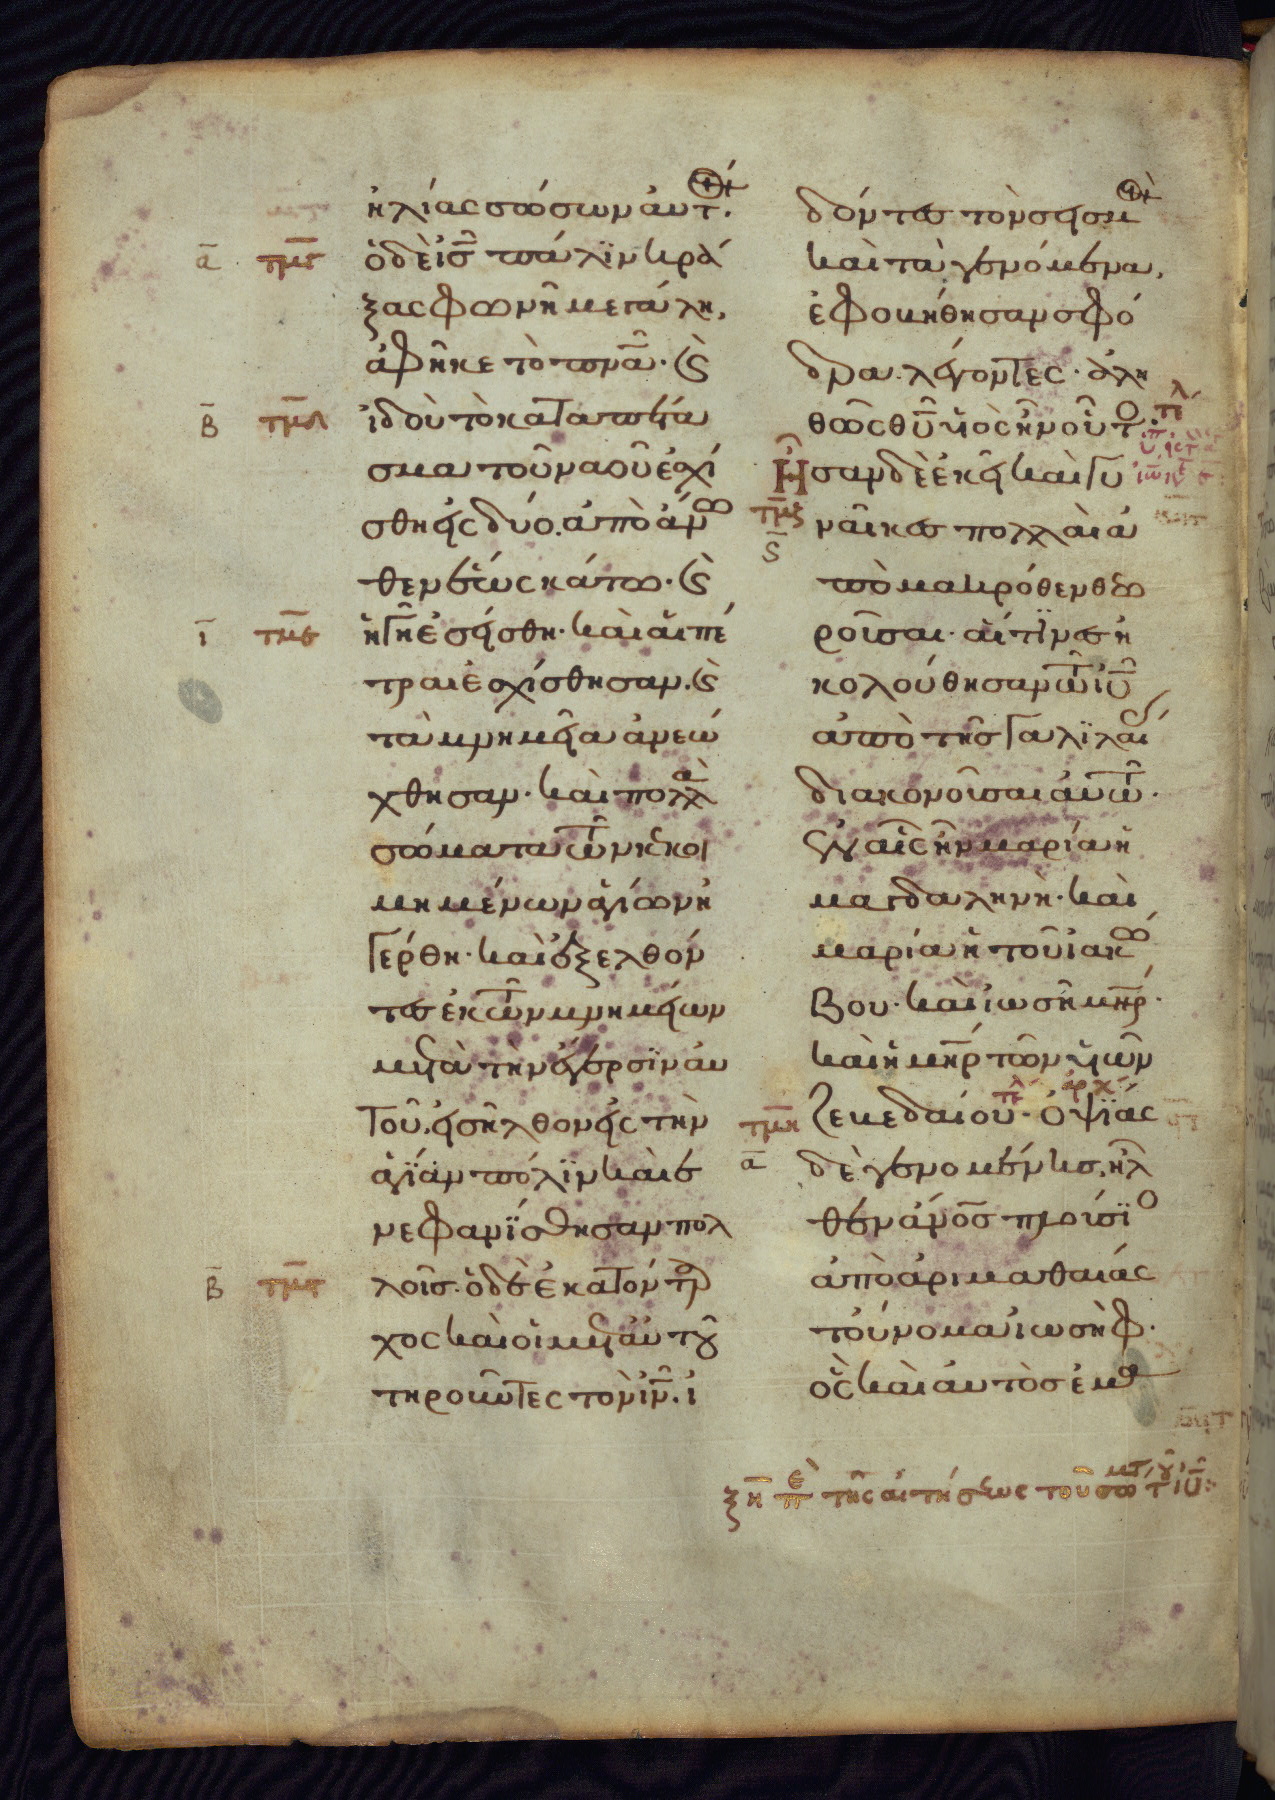 ἡλίας σώσων αὐτ.
ὁ δὲ ἰς̅ πάλϊν κρά
ξας φωνῆ μεγάλη,
ἀφῆκε τὸ πνᾶ. Κς̀
ἰδοὺ τὸ καταπέτα
σμα τοῦ ναοῦ ἐσχί
σθη εἰς δύο. ἀπὸ ἄνω
θεν ἕως κάτω. Κς̀
ἡ γῆ ἐσείσθη. καὶ αἱ πέ
τραι ἐσχίσθησαν. Κς̀
τὰ μνημεῖα ἀνεώ
χθησαν. καὶ πολλὰ
σώματα τῶν κεκοι
μημένων ἁγίων ἠ
γέρθη. καὶ ἐξελθόν
τες ἐκ τῶν μνημείων
μετὰ τὴν ἔγερσϊν αὐ
τοῦ, εἰσῆλθον εἰς τὴν
ἁγίαν πόλϊν καὶ ἐ
νεφανΐσθησαν πολ
λοῖς. ὁ δὲ ἑκατόνταρ
χος καὶ οἱ μετ' αὐτοῦ
τηροῦντες τὸν ἰν̅. ἰ
δόντες τὸν σεισμ
καὶ τὰ γενόμενα,
ἐφοβήθησαν σφό
δρα. λέγοντες. ἀλη
θῶς θυ̅ υἱὸς ἦν οὗτο.
Ἦσαν δὲ ἐκεῖ καὶ γυ
ναῖκες πολλαὶ ἀ
πὸ μακρόθεν θεω
ροῦσαι. αἵτϊνες ἠ
κολούθησαν τῶ ἰυ̅
ἀπὸ τῆς Γαλϊλαί
διακονοῦσαι αὐτῶ.
ἐν αἷς ἦν μαρία ἡ
μαγδαληνὴ. καὶ
μαρία ἡ τοῦ ἰακώ
βου. καὶ ἰωσῆ μηρ̅.
καὶ ἡ μηρ̅ τῶν υἱῶν
Ζεβεδαίου. Ὀψΐας
δὲ γενομένης, ἦλ
θεν ἄνος̅ πλούσϊο
ἀπὸ ἀριμαθαίας
τοὔνομα ἰωσὴφ.
ὃς καὶ αὐτὸς ἐμαθ
ξη̅ πε τῆς αἰτήσεως τοῦ σώματ τ ἰυ̅: